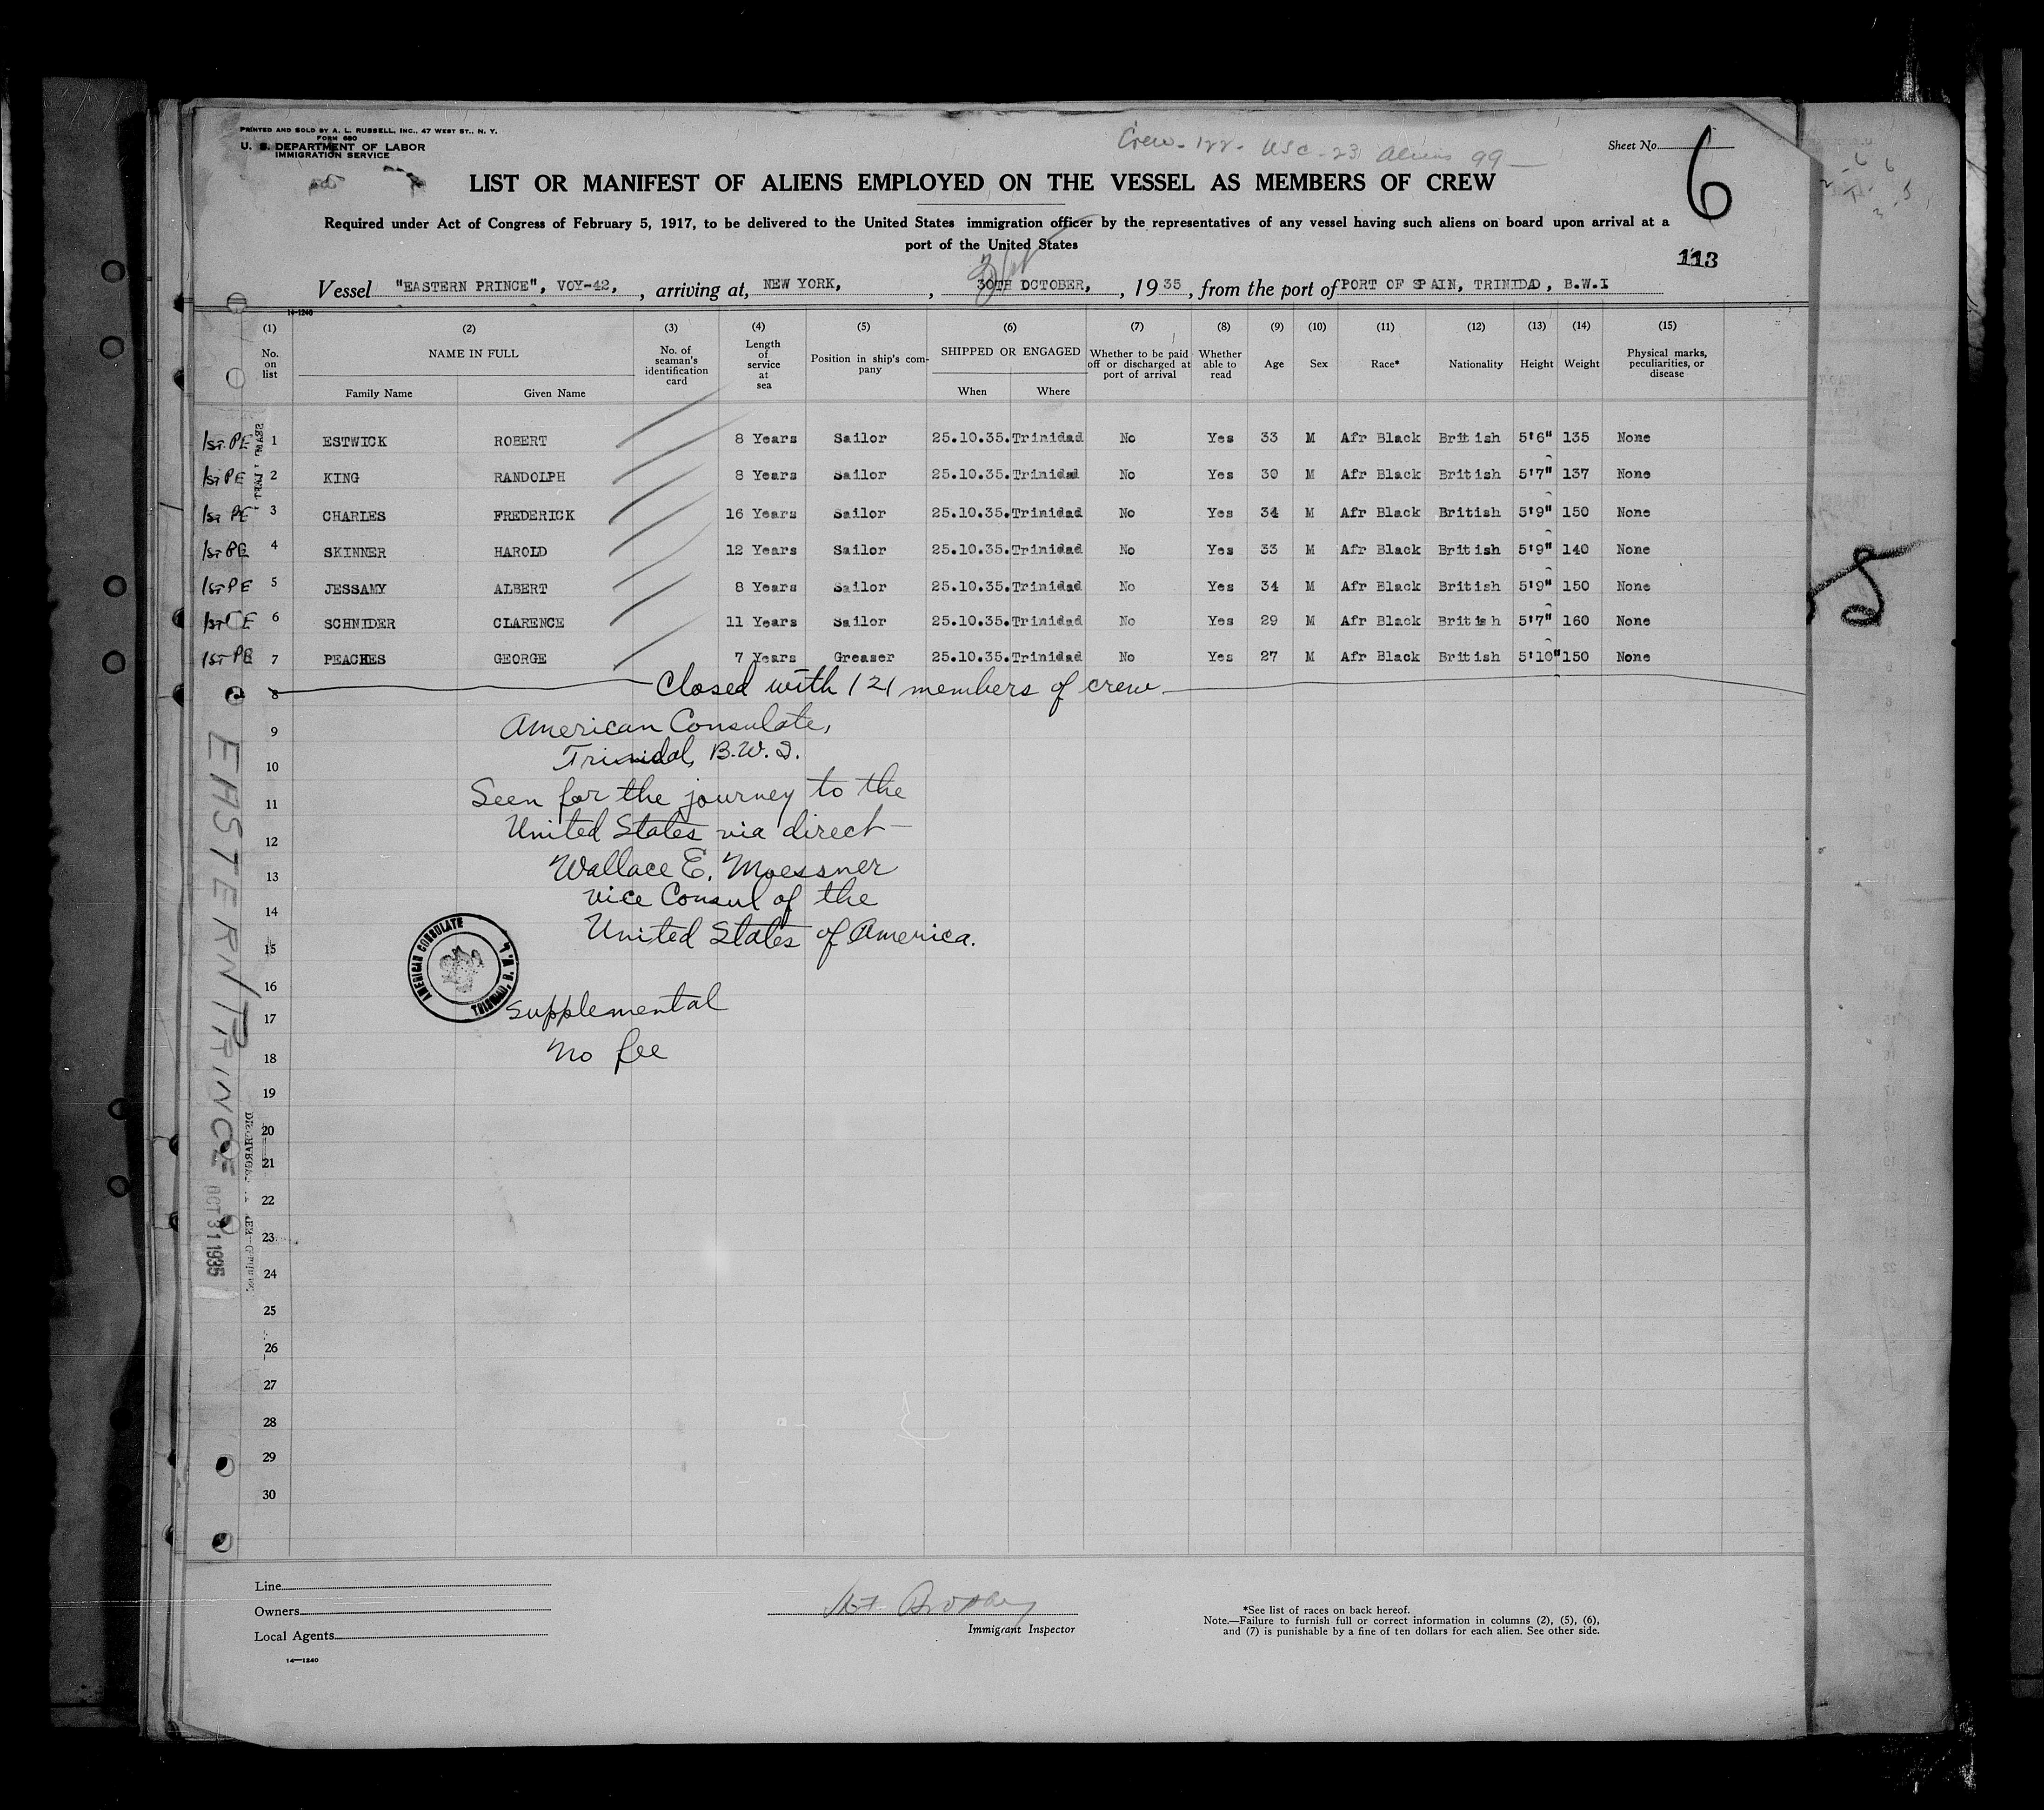 PRINTED AND SOLD BY A. L. RUSSELL, INC., 47 WEST ST., N. Y.
FORM 680
U. S. DEPARTMENT OF LABOR
IMMIGRATION SERVICE
Crew - 122 - USC - 23 Aliens 99 —
Sheet No.
6
LIST OR MANIFEST OF ALIENS EMPLOYED ON THE VESSEL AS MEMBERS OF CREW
Required under Act of Congress of February 5, 1917, to be delivered to the United States immigration officer by the representatives of any vessel having such aliens on board upon arrival at a
port of the United States
113
31st
Vessel "EASTERN PRINCE", VOY-42, , arriving at, NEW YORK, , 30TH OCTOBER, , 19 35 , from the port of PORT OF SPAIN, TRINIDAD, B.W.I
14-1240
(1) (2) (3) (4) (5) (6) (7) (8) (9) (10) (11) (12) (13) (14) (15)
No. on list NAME IN FULL Family Name Given Name No. of seaman's identification card Length of service at sea Position in ship's company SHIPPED OR ENGAGED When Where Whether to be paid off or discharged at port of arrival Whether able to read Age Sex Race* Nationality Height Weight Physical marks, peculiarities, or disease
1st PE 1 ESTWICK ROBERT 8 Years Sailor 25.10.35. Trinidad No Yes 33 M Afr Black British 5'6" 135 None
1st PE 2 KING RANDOLPH 8 Years Sailor 25.10.35. Trinidad No Yes 30 M Afr Black British 5'7" 137 None
1st PE 3 CHARLES FREDERICK 16 Years Sailor 25.10.35. Trinidad No Yes 34 M Afr Black British 5'9" 150 None
1st PE 4 SKINNER HAROLD 12 Years Sailor 25.10.35. Trinidad No Yes 33 M Afr Black British 5'9" 140 None
1st PE 5 JESSAMY ALBERT 8 Years Sailor 25.10.35. Trinidad No Yes 34 M Afr Black British 5'9" 150 None
1st PE 6 SCHNIDER CLARENCE 11 Years Sailor 25.10.35. Trinidad No Yes 29 M Afr Black British 5'7" 160 None
1st PE 7 PEACHES GEORGE 7 Years Greaser 25.10.35. Trinidad No Yes 27 M Afr Black British 5'10" 150 None
8 Closed with 121 members of crew
9 American Consulate,
10 Trinidad, B.W.I.
11 Seen for the journey to the
12 United States via direct —
13 Wallace E. Moessner
14 Vice Consul of the
15 United States of America.
AMERICAN CONSULATE
TRINIDAD, B. W. I.
16 Supplemental
17
18 No fee
19
20
21
22
23
24
25
26
27
28
29
30
EASTERN PRINCE
OCT 31 1935
Line
Owners
Local Agents
14—1240
Immigrant Inspector
*See list of races on back hereof.
Note.—Failure to furnish full or correct information in columns (2), (5), (6),
and (7) is punishable by a fine of ten dollars for each alien. See other side.